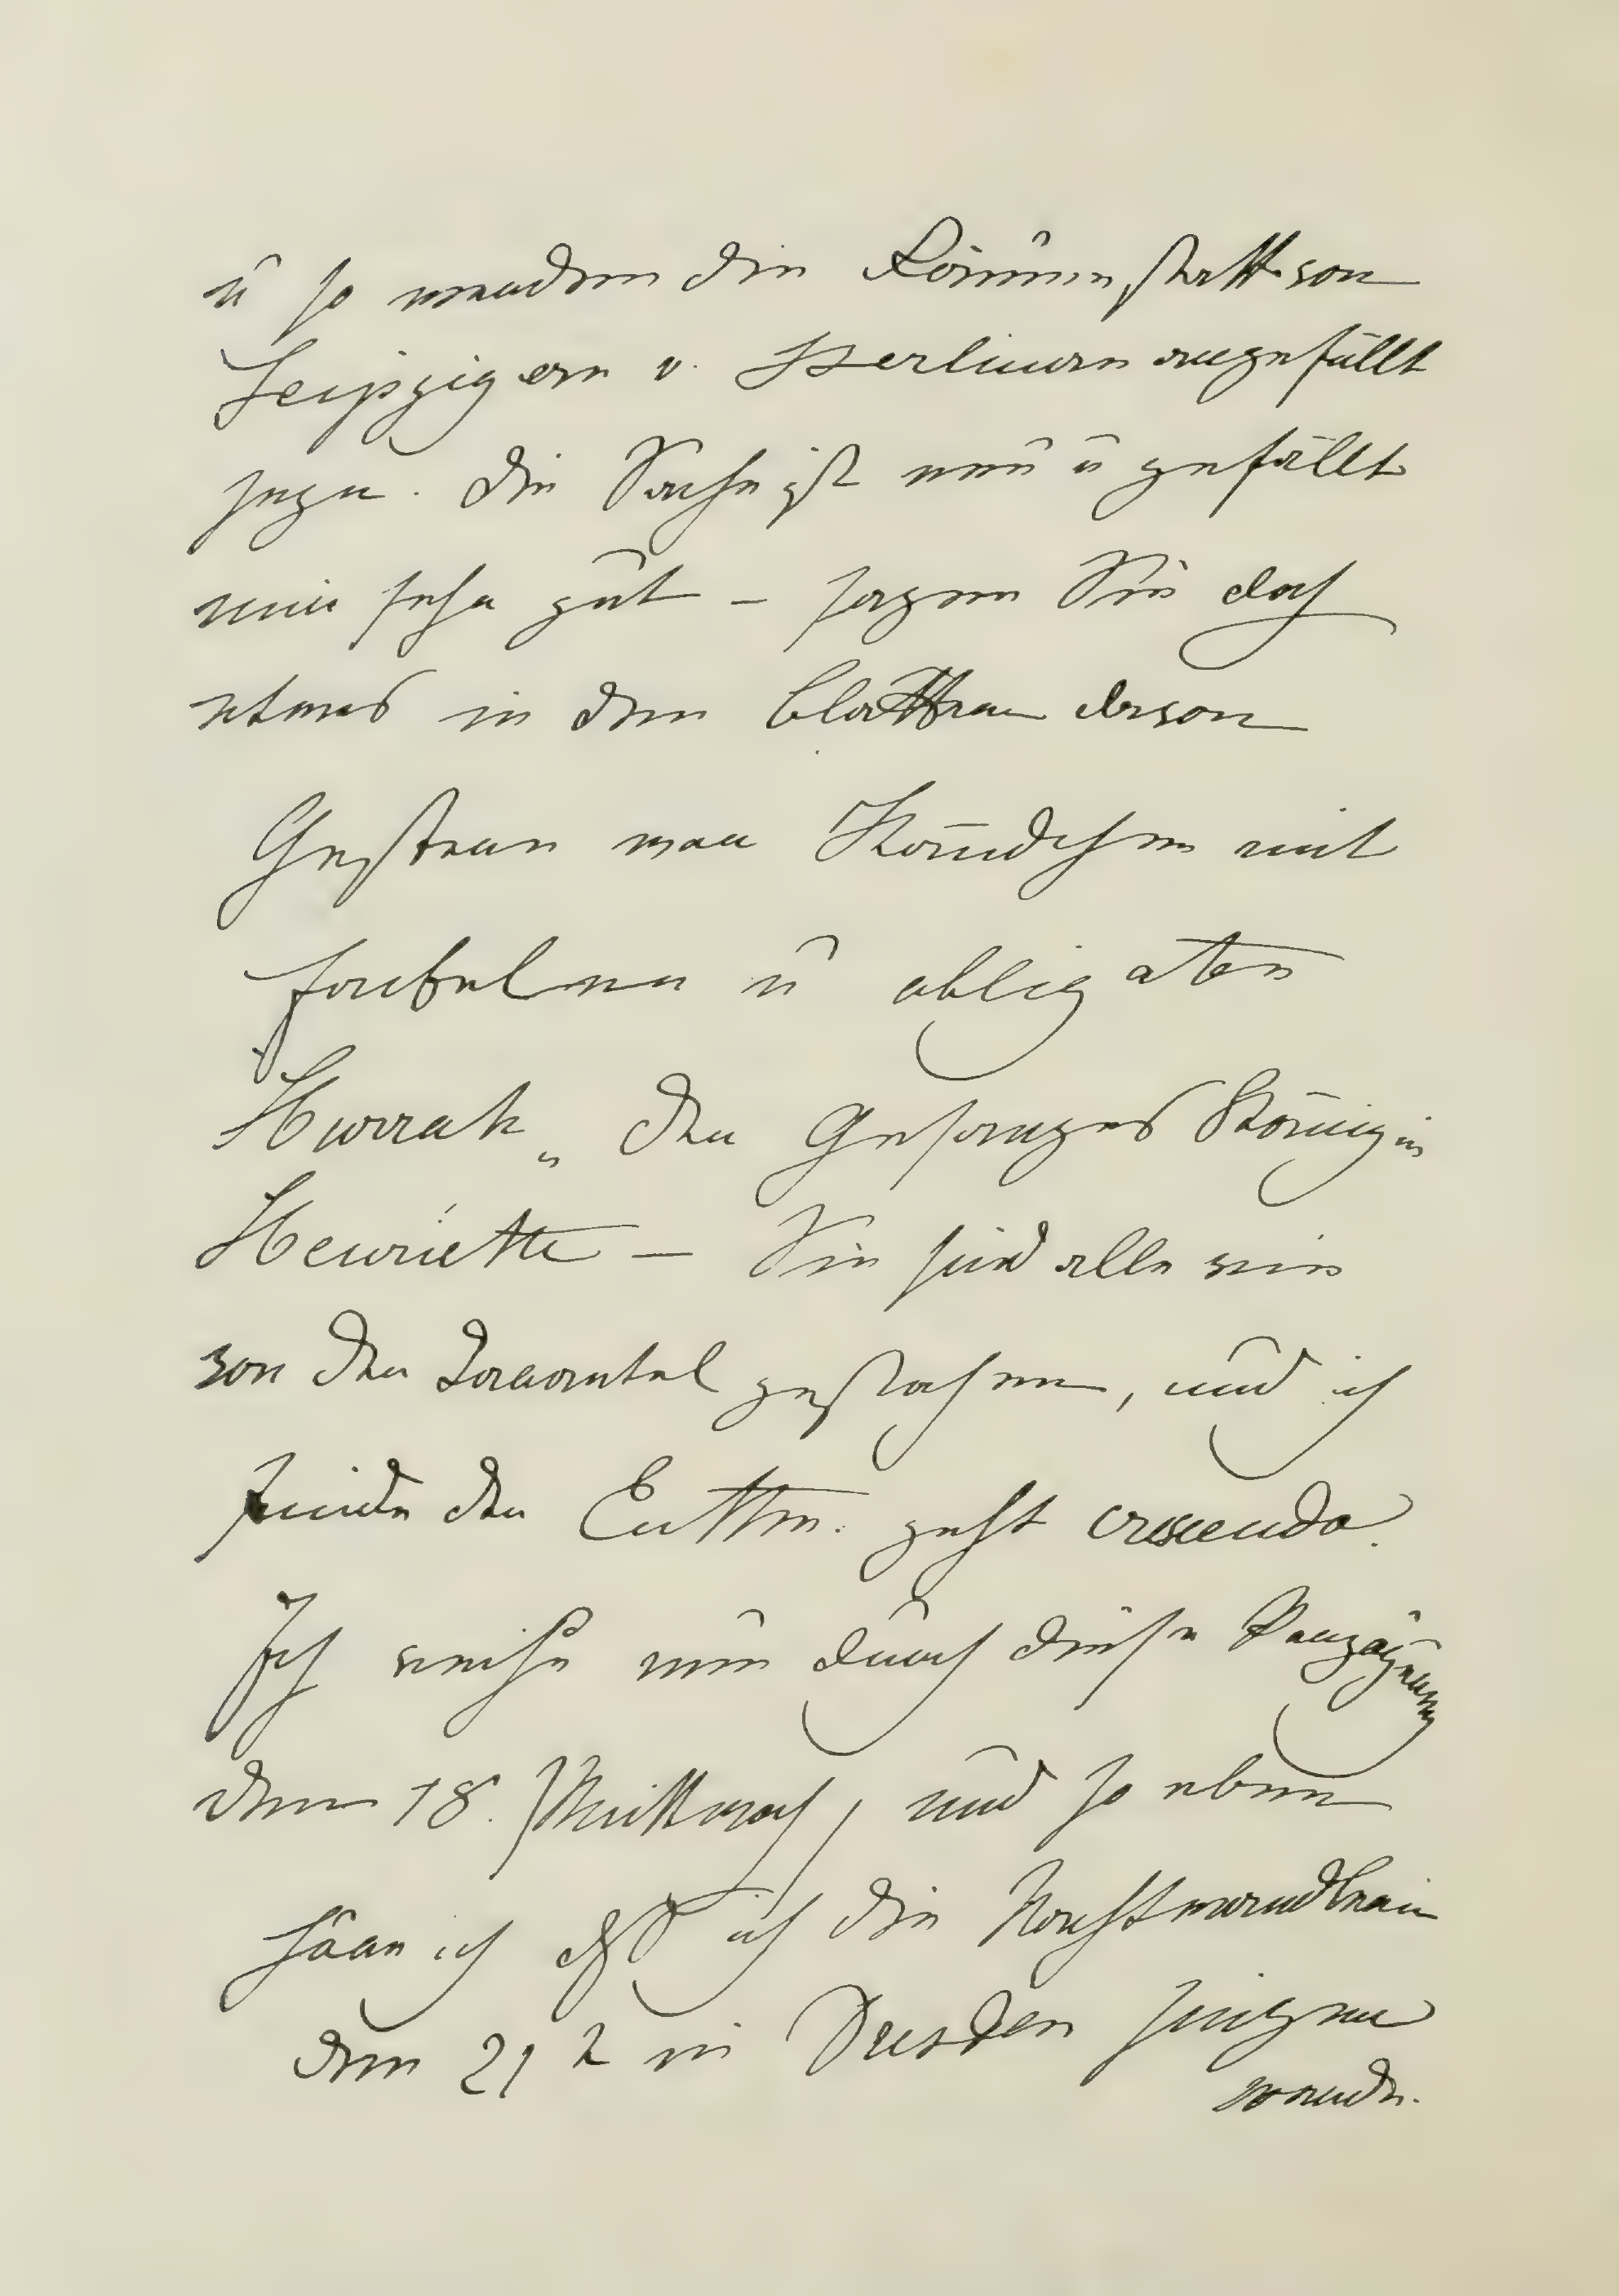 u so werden die Räume statt von
Leipzigern v. Berlinern angefüllt
sey. Die Sache ist neu u gefällt
mir sehr gut – sagen Sie doch
etwas in den Blättern davon
Gestern war Ständchen mit
Fackeln u obligaten
Hurrah „ der Gesanges Königin
Henriette – Sie sind alle wie
von der Tarantel gestochen, und ich
finde der Enthus: geht crescendo.
Ich reise nun durch diese
den 18. Mittwoch, und so eben
höre ich daß ich die Nachtwandlerin
den 21 t in Dresden singen
werde.